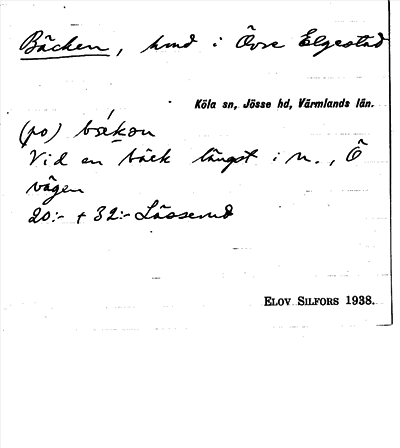 Bäcken, hmd i Övre Elgestad
Köla sn, Jösse hd, Värmlands län.
(po) bækən
Vid en bäck längst i n., Ö
vägen
20:- + 32:- Lösseund
ELOV SILFORS 1938.